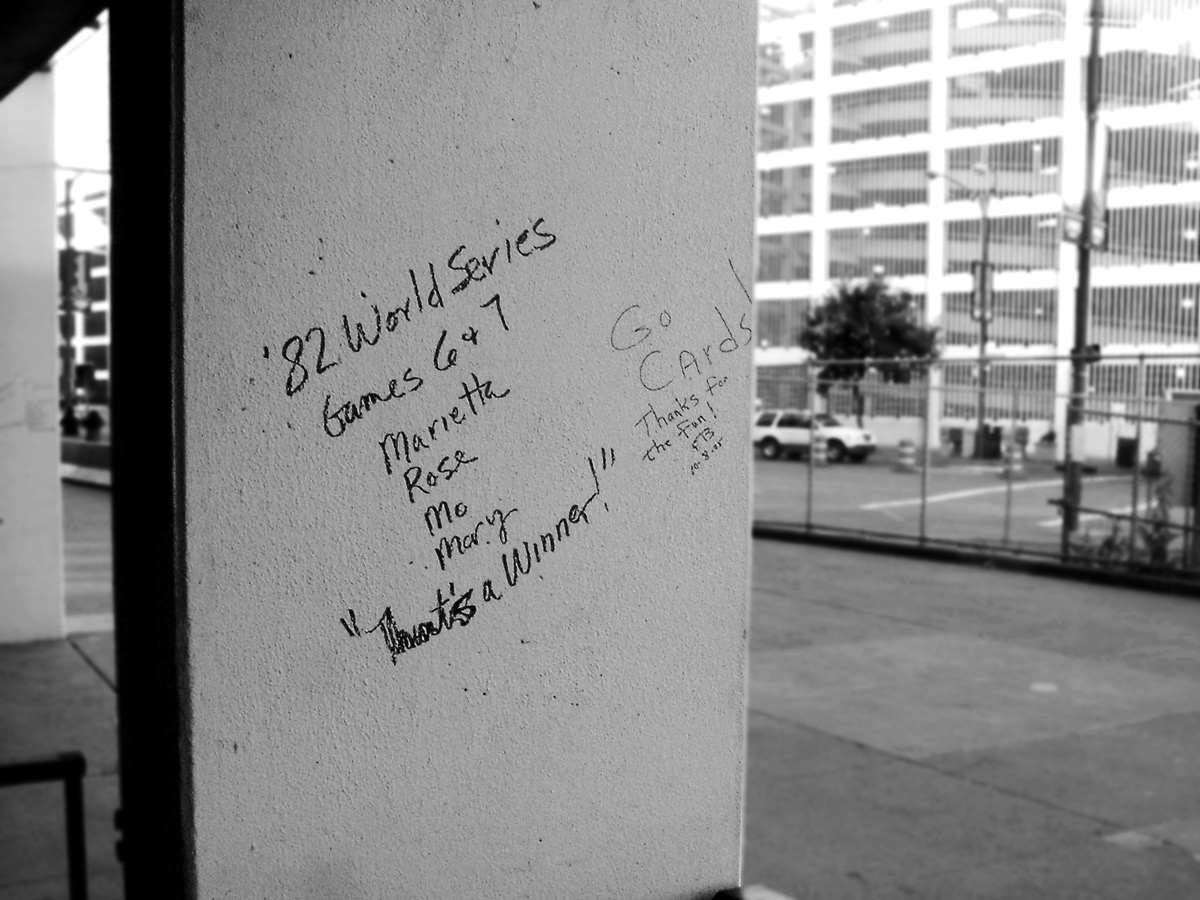 '82 World Series
Games 6 & 7
Marietta
Rose
Mo
Mary
"That's a Winner!"
Go
Cards!
Thanks for
the fun!
FB
10.8.05